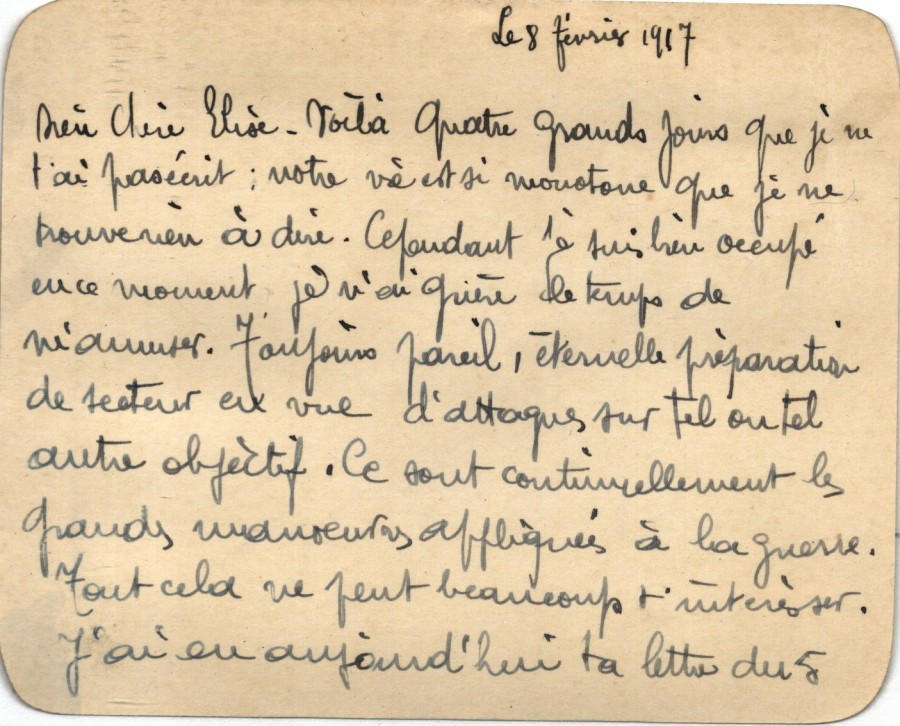 Le 8 février 1917
Bien Chère Elise - Voilà quatre grands jours que je ne
t'ai pas écrit ; notre vie est si monotone que je ne
trouve rien à dire. Cependant je suis bien occupé
en ce moment je n'ai guère le temps de
m'amuser. Toujours pareil, éternelle préparation
de secteur en vue d'attaques sur tel ou tel
autre objectif. Ce sont continuellement les
grandes manoeuvres appliquées à la guerre.
Tout cela ne peut beaucoup t'intéresser.
J'ai eu aujourd'hui ta lettre du 5